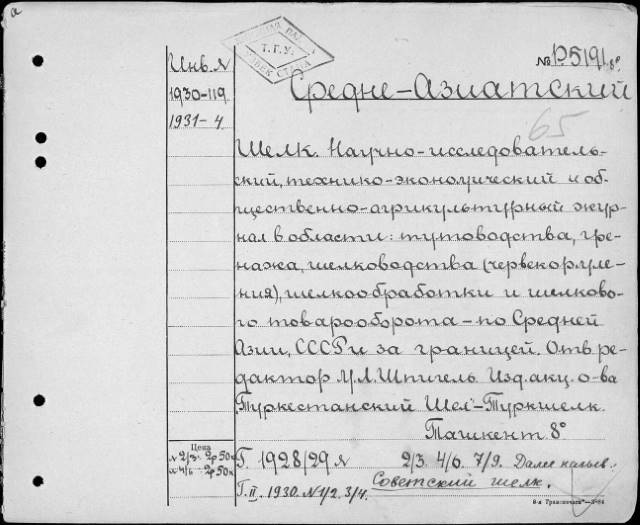 Т.Г.У.
Инв. №
1930-119
1931-4
№ P5191 8°
Средне-Азиатский
65
Шелк. Научно-исследователь-
ский, технико-экономический и об-
щественно-агрикультурный жур-
нал в области: тутоводства, гре-
нажа, шелководства (червекормле-
ния), шелкообработки и шелково-
го товарооборота - по Средней
Азии, СССР и за границей. Отв. ре-
дактор М.Л. Шпигель Изд. акц. о-ва
Туркестанский Шел-Туркшелк.
Ташкент 8°
Цена
№ 2/3 2р 50к
№ 4/6 - 2р 50к
Г. 1928/29 № 2/3. 4/6. 7/9. Далее назыв.:
Советский шелк.
Г. II. 1930. № 1/2. 3/4.